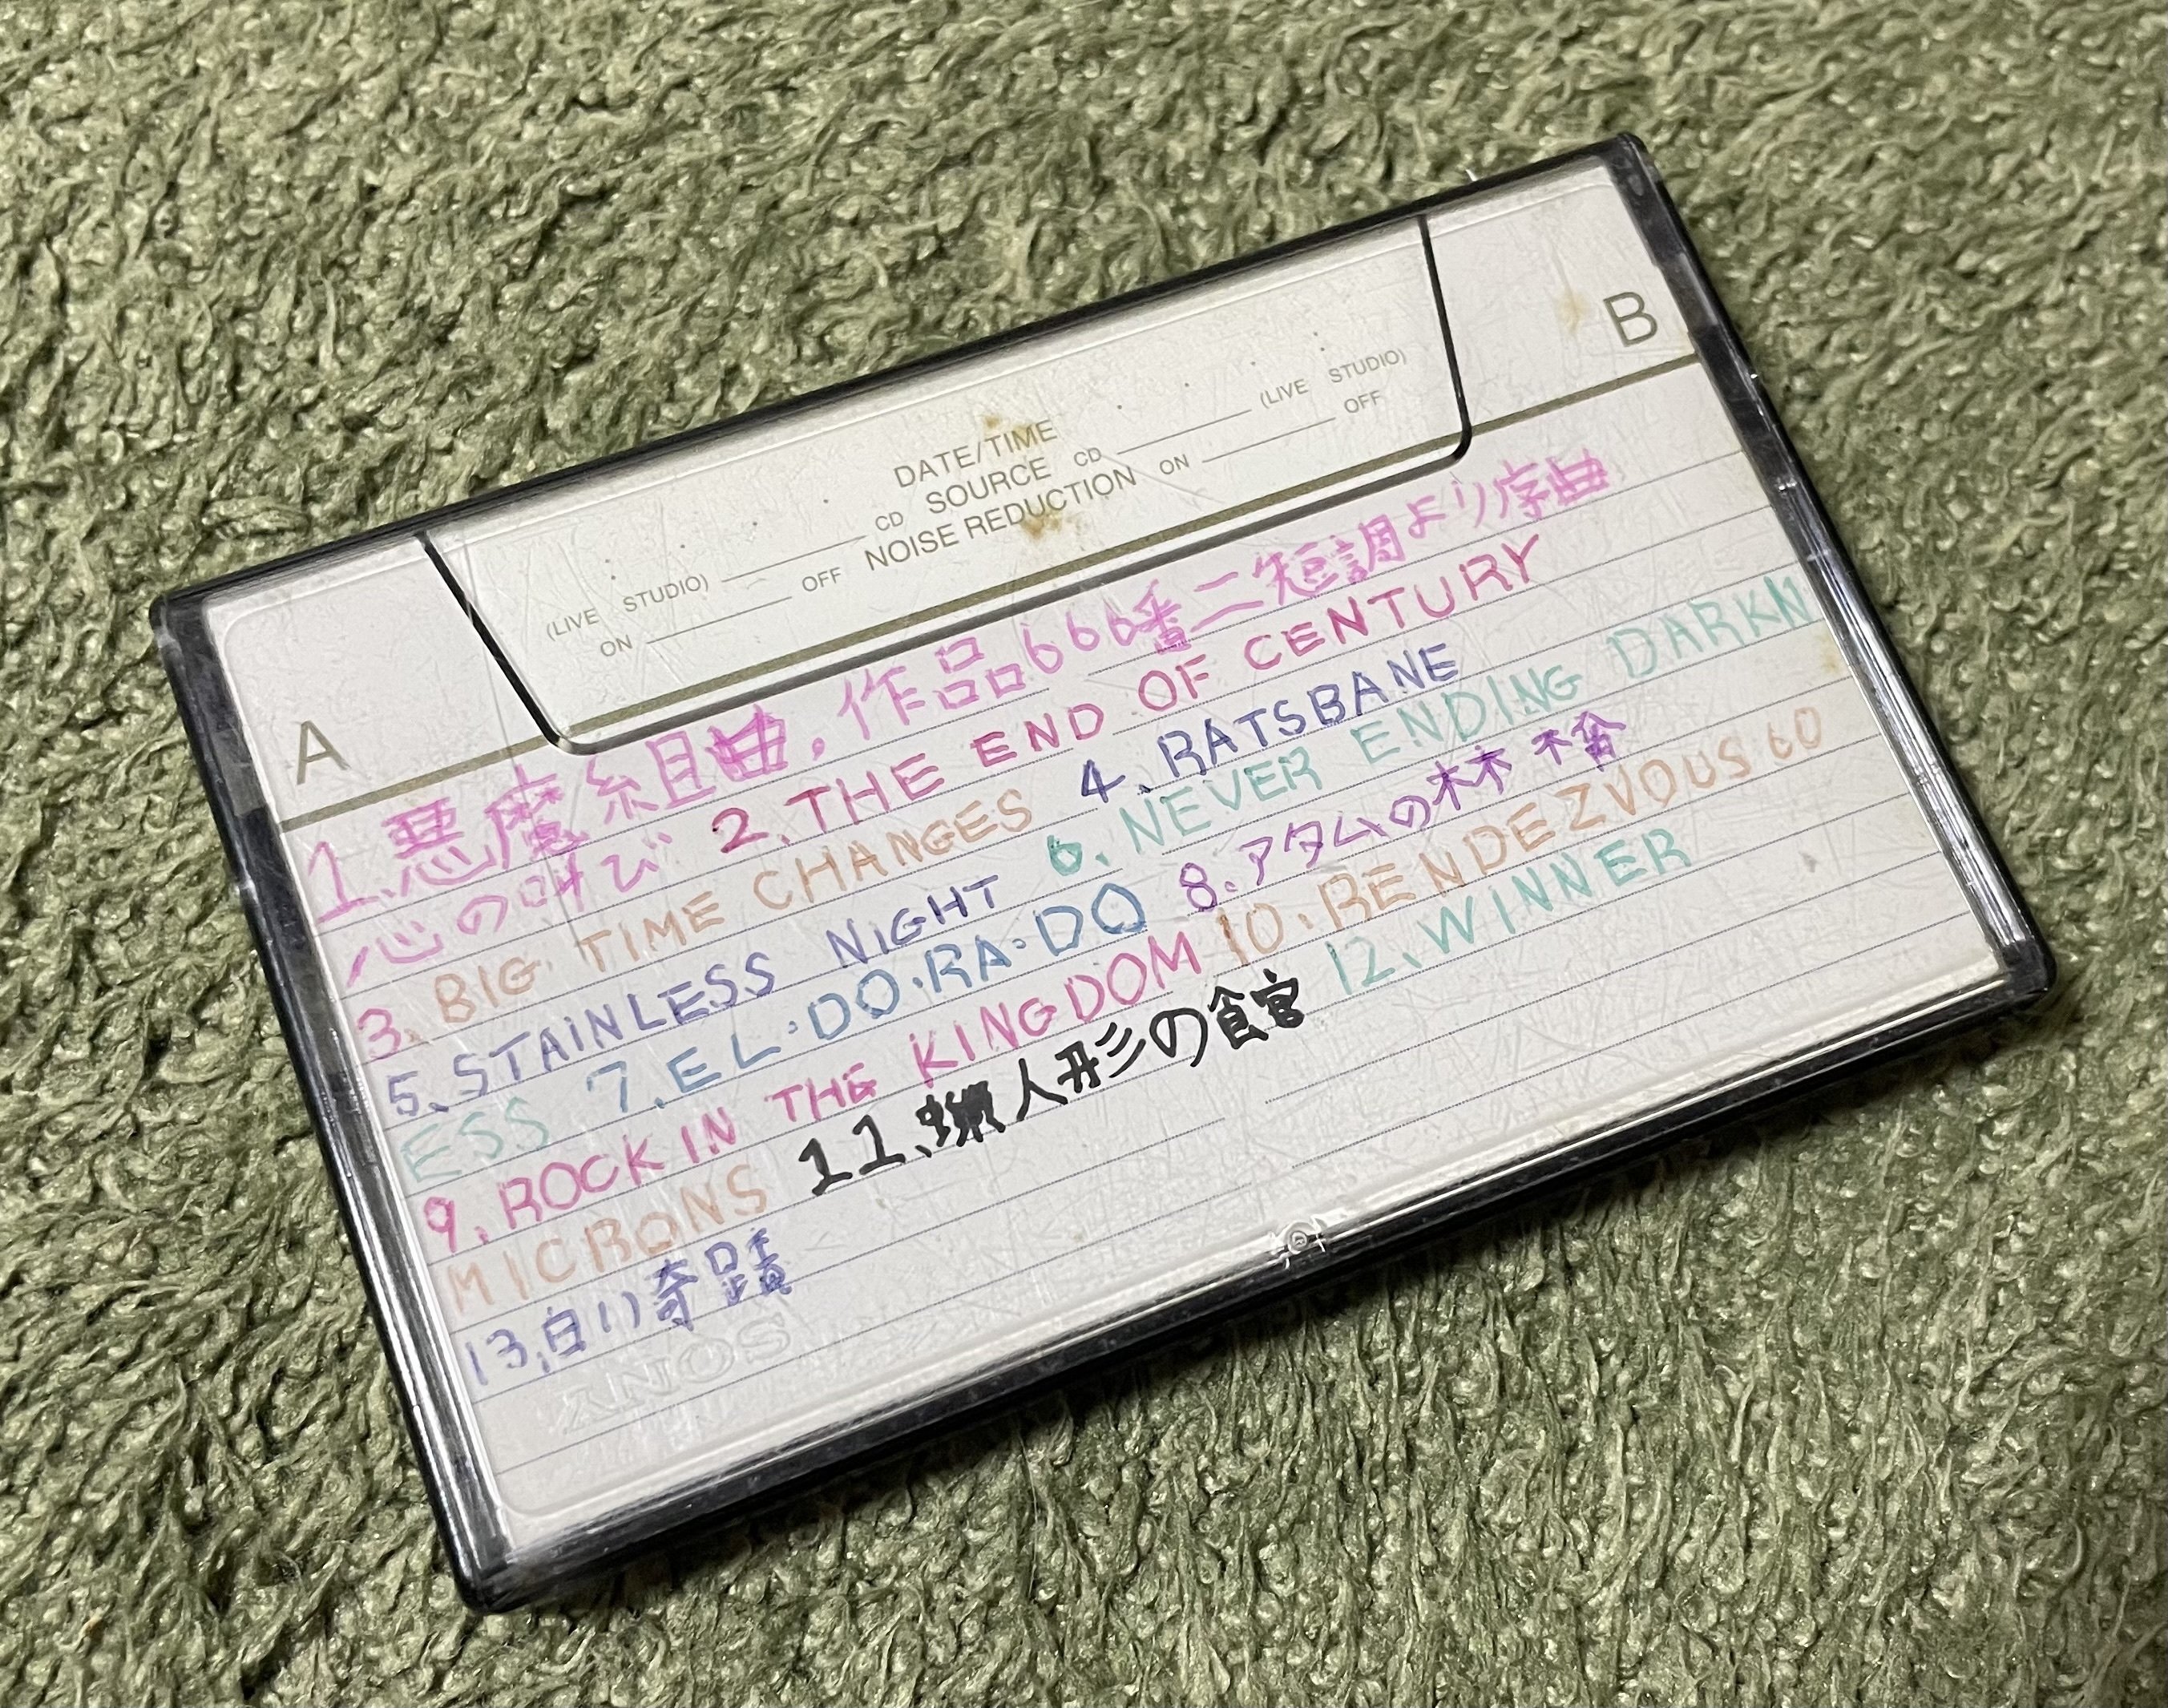 A
B
DATE/TIME
CD SOURCE CD
(LIVE STUDIO)
(LIVE STUDIO)
ON OFF NOISE REDUCTION ON OFF
1.悪魔組曲,作品666番二短調より序曲
心の叫び 2.THE END OF CENTURY
3.BIG TIME CHANGES 4.RATSBANE
5.STAINLESS NIGHT 6.NEVER ENDING DARKN
ESS 7.EL・DO・RA・DO 8.アダムの林檎
9.ROCK IN THE KINGDOM 10.RENDEZVOUS 60
MICRONS 11.蝋人形の館 12.WINNER
13.白い奇蹟
SONY